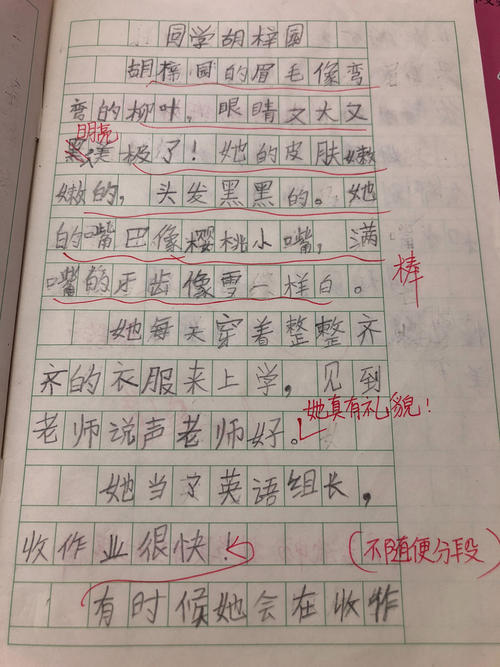 同学胡梓园
胡梓园的眉毛像弯
弯的柳叶，眼睛又大又
明亮
黑，美极了！她的皮肤嫩
嫩的，头发黑黑的。她
的嘴巴像樱桃小嘴，满
嘴的牙齿像雪一样白。
棒
她每天穿着整整齐
齐的衣服来上学，见到
她真有礼貌！
老师说声老师好。
她当了英语组长，
收作业很快！
（不随便分段）
有时候她会在收作